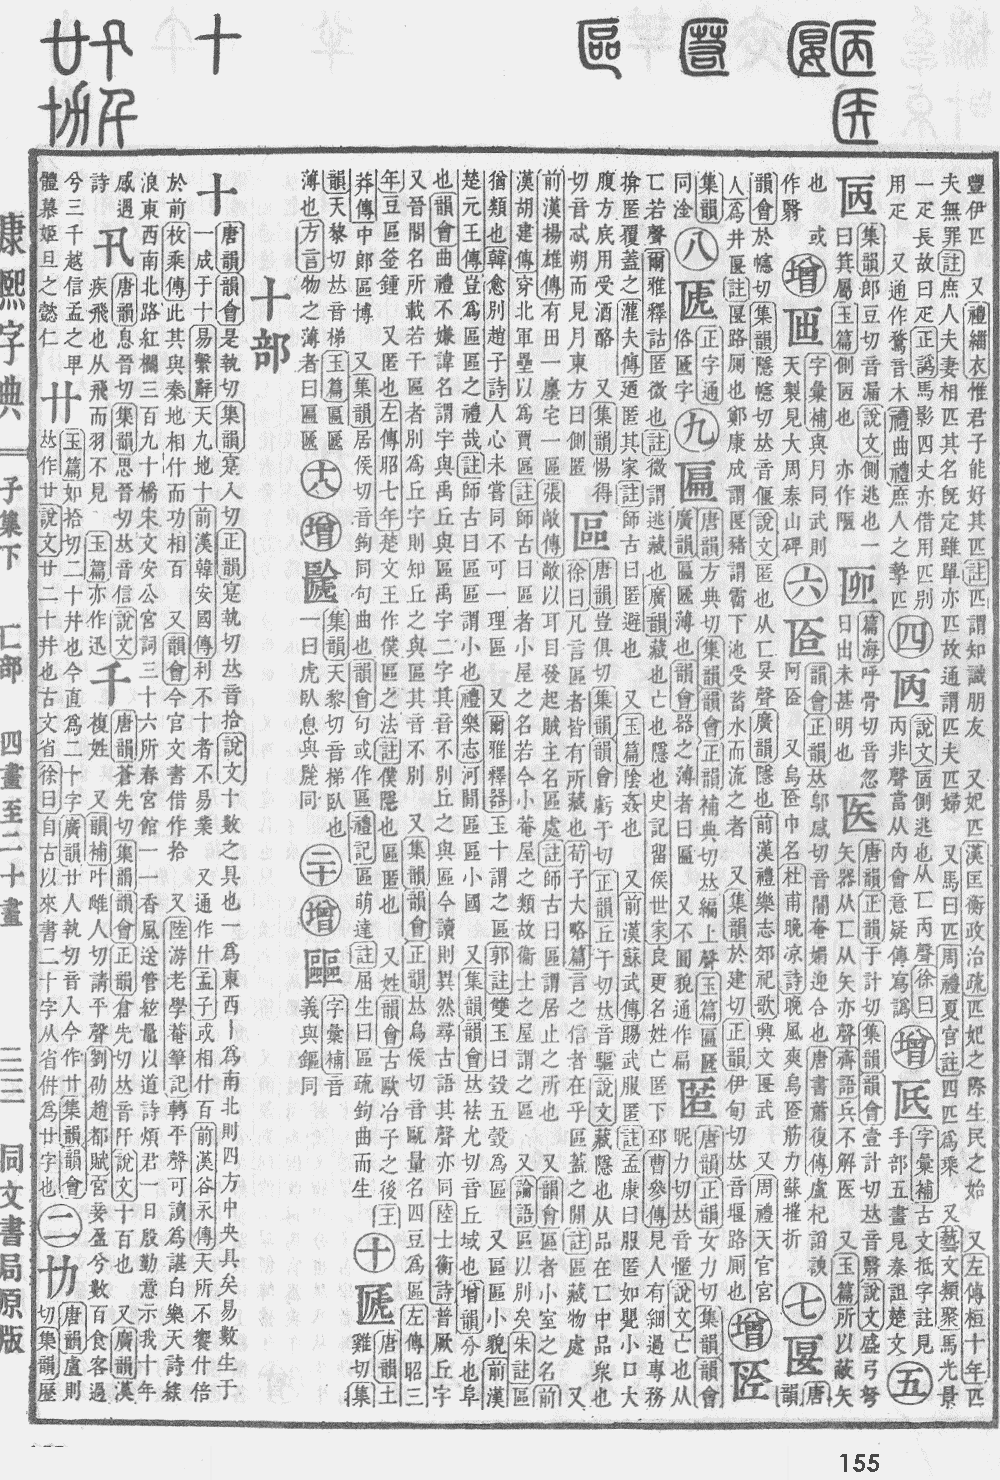 豐伊匹 又禮緇衣惟君子能好其匹註匹謂知識朋友 又妃匹漢匡衡政治疏匹妃之際生民之始 又左傳桓十年匹
夫無罪註庶人夫妻相匹其名旣定雖單亦匹故通謂匹夫匹婦 又馬曰匹周禮夏官註四匹爲乘 又藝文類聚馬光景
一疋長故曰疋正譌馬影四丈亦借用匹別
用疋 又通作鶩音木禮曲禮庶人之摯匹
四
說文側逃也从匸丙聲徐曰
丙非聲當从內會意疑傳寫譌
增
字彙補古文抵字註見
手部五畫見秦詛楚文
五
集韻郎豆切音漏說文側逃也一
曰箕屬玉篇側匧也 亦作陋
篇海呼骨切音忽
日出未甚明也
医
唐韻正韻于計切集韻韻會壹計切𠀤音翳說文盛弓弩
矢器从匸从矢亦聲齊語兵不解医 又玉篇所以蔽矢
也 或
作翳
增
字彙補與月同武則
天製見大周泰山碑
六
韻會正韻𠀤鄔感切音闇奄媕迎合也唐書蕭復傳盧杞諂諛
阿匼 又烏匼巾名杜甫晚凉詩晚風爽烏匼筋力蘇摧折
七
匽
唐
韻
韻會於幰切集韻隱幰切𠀤音偃說文匿也从匸妟聲廣韻隱也前漢禮樂志郊祀歌興文匽武 又周禮天官宮
人爲井匽註匽路厠也鄭康成謂匽豬謂霤下池受蓄水而流之者 又集韻於建切正韻伊甸切𠀤音堰路厠也
增
集韻
同淦
八
正字通
俗匱字
九
匾
唐韻方典切集韻韻會正韻補典切𠀤編上聲玉篇匾㔸
廣韻匾㔸薄也韻會器之薄者曰匾 又不圓貌通作扁
匿
唐韻正韻女力切集韻韻會
昵力切𠀤音惬說文亡也从
匸若聲爾雅釋詁匿微也註微謂逃藏也廣韻藏也亡也隱也史記留侯世家良更名姓亡匿下邳曹參傳見人有細過專務
揜匿覆蓋之灌夫傳廼匿其家註師古曰匿避也 又玉篇陰姦也 又前漢蘇武傳賜武服匿註孟康曰服匿如甖小口大
腹方底用受酒酪 又集韻惕得
切音忒朔而見月東方曰側匿
區
唐韻豈俱切集韻韻會虧于切正韻丘于切𠀤音驅說文藏隱也从品在匸中品衆也
徐曰凡言區者皆有所藏也荀子大略篇言之信者在乎區蓋之閒註區藏物處 又
前漢揚雄傳有田一廛宅一區張敞傳敞以耳目發起賊主名區處註師古曰區謂居止之所也 又韻會區者小室之名前
漢胡建傳穿北軍壘以爲賈區註師古曰區者小屋之名若今小菴屋之類故衞士之屋謂之區 又論語區以別矣朱註區
猶類也韓愈別趙子詩人心未嘗同不可一理區 又爾雅釋器玉十謂之區郭註雙玉曰瑴五瑴爲區 又區區小貌前漢
楚元王傳豈爲區區之禮哉註師古曰區區謂小也禮樂志河閒區區小國 又集韻韻會𠀤袪尤切音丘域也增韻分也阜
也韻會曲禮不嫌諱名謂字與禹丘與區禹字二字其音不別丘之與區今讀則異然尋古語其聲亦同陸士衡詩普厥丘字
又晉閣名所載若干區者別爲丘字則知丘之與區其音不別 又集韻韻會正韻𠀤烏侯切音甌量名四豆爲區左傳昭三
年豆區釜鍾 又匿也左傳昭七年楚文王作僕區之法註僕隱也區匿也 又姓韻會古歐冶子之後王
莽傳中郞區博 又集韻居侯切音鉤同句曲也韻會句或作區禮記區萌達註屈生曰區疏鉤曲而生
十
唐韻土
雞切集
韻天黎切𠀤音梯玉篇匾㔸
薄也方言物之薄者曰匾㔸
增
集韻天黎切音梯臥也
一曰虎臥息與㔸同
增
字彙補音
義與䡱同
十部
十
唐韻韻會是執切集韻寔入切正韻寔執切𠀤音拾說文十數之具也一爲東西丨爲南北則四方中央具矣易數生于
一成于十易繫辭天九地十前漢韓安國傳利不十者不易業 又通作什孟子或相什百前漢谷永傳天所不饗什倍
於前枚乘傳此其與秦地相什而功相百 又韻會今官文書借作拾 又陸游老學菴筆記轉平聲可讀爲諶白樂天詩綠
浪東西南北路紅欄三百九十橋宋文安公宮詞三十六所春宮館一一香風送管絃鼂以道詩煩君一日殷勤意示我十年
感遇
詩
卂
唐韻息晉切集韻思晉切𠀤音信說文
疾飛也从飛而羽不見 玉篇亦作迅
千
唐韻蒼先切集韻韻會正韻倉先切𠀤音阡說文十百也 又廣韻漢
複姓 又韻補叶雌人切請平聲劉劭趙都賦宮妾盈兮數百食客過
兮三千越信孟之𤰞
體慕姬旦之懿仁
廾
玉篇如拾切二十并也今直爲二十字廣韻廿人執切音入今作廿集韻韻會
𠀤作廿說文廿二十并也古文省徐曰自古以來書二十字从省倂爲廿字也
二
唐韻盧則
切集韻歷
康熙字典 子集下 匸部 四畫至二十畫 二三 同文書局原版
155